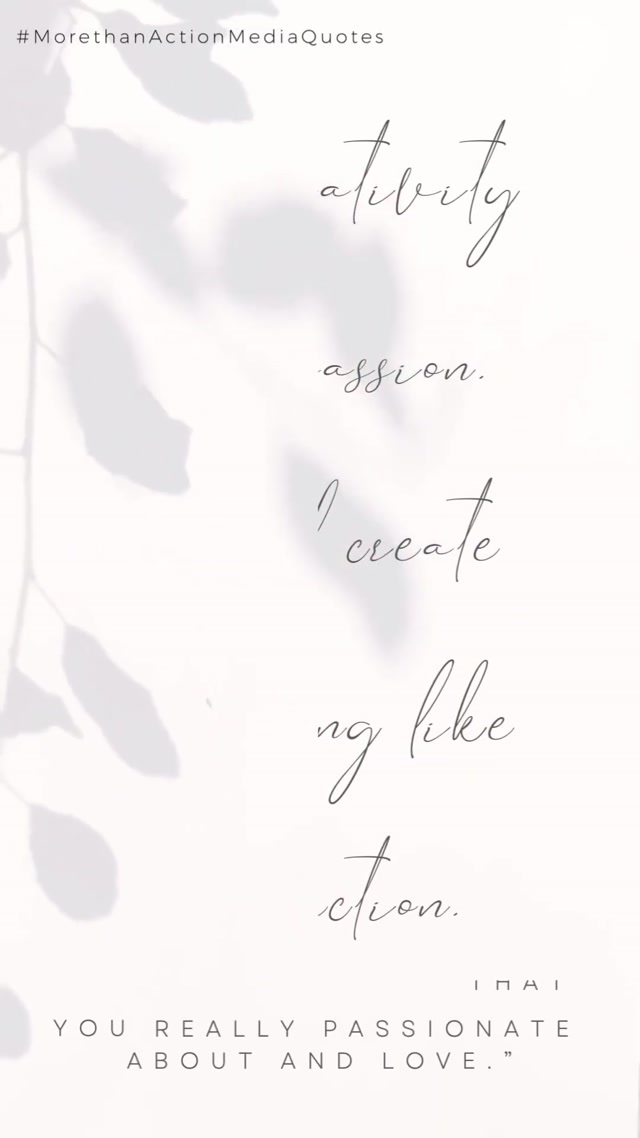 #MorethanActionMediaQuotes
ativity
assion.
I create
ng like
ction.
THAT
YOU REALLY PASSIONATE
ABOUT AND LOVE.”